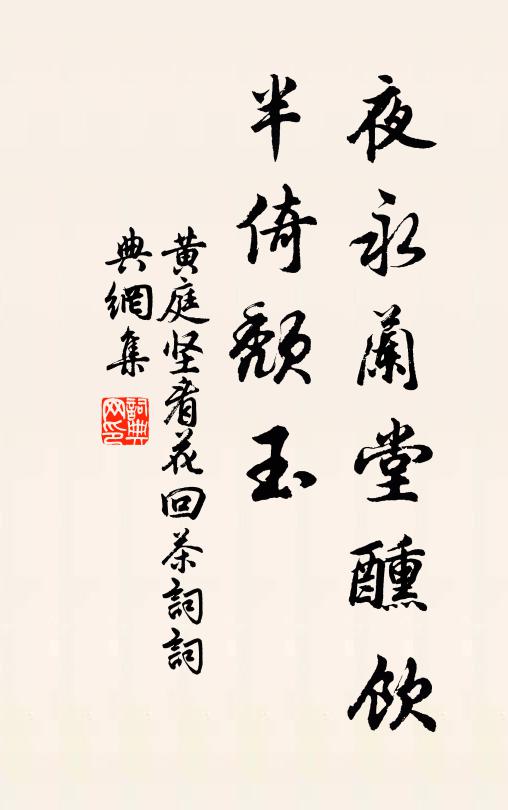 夜永蘭堂醺飲
半倚頽玉
黄庭坚看花回茶詞詞
典網集
詞典
网印